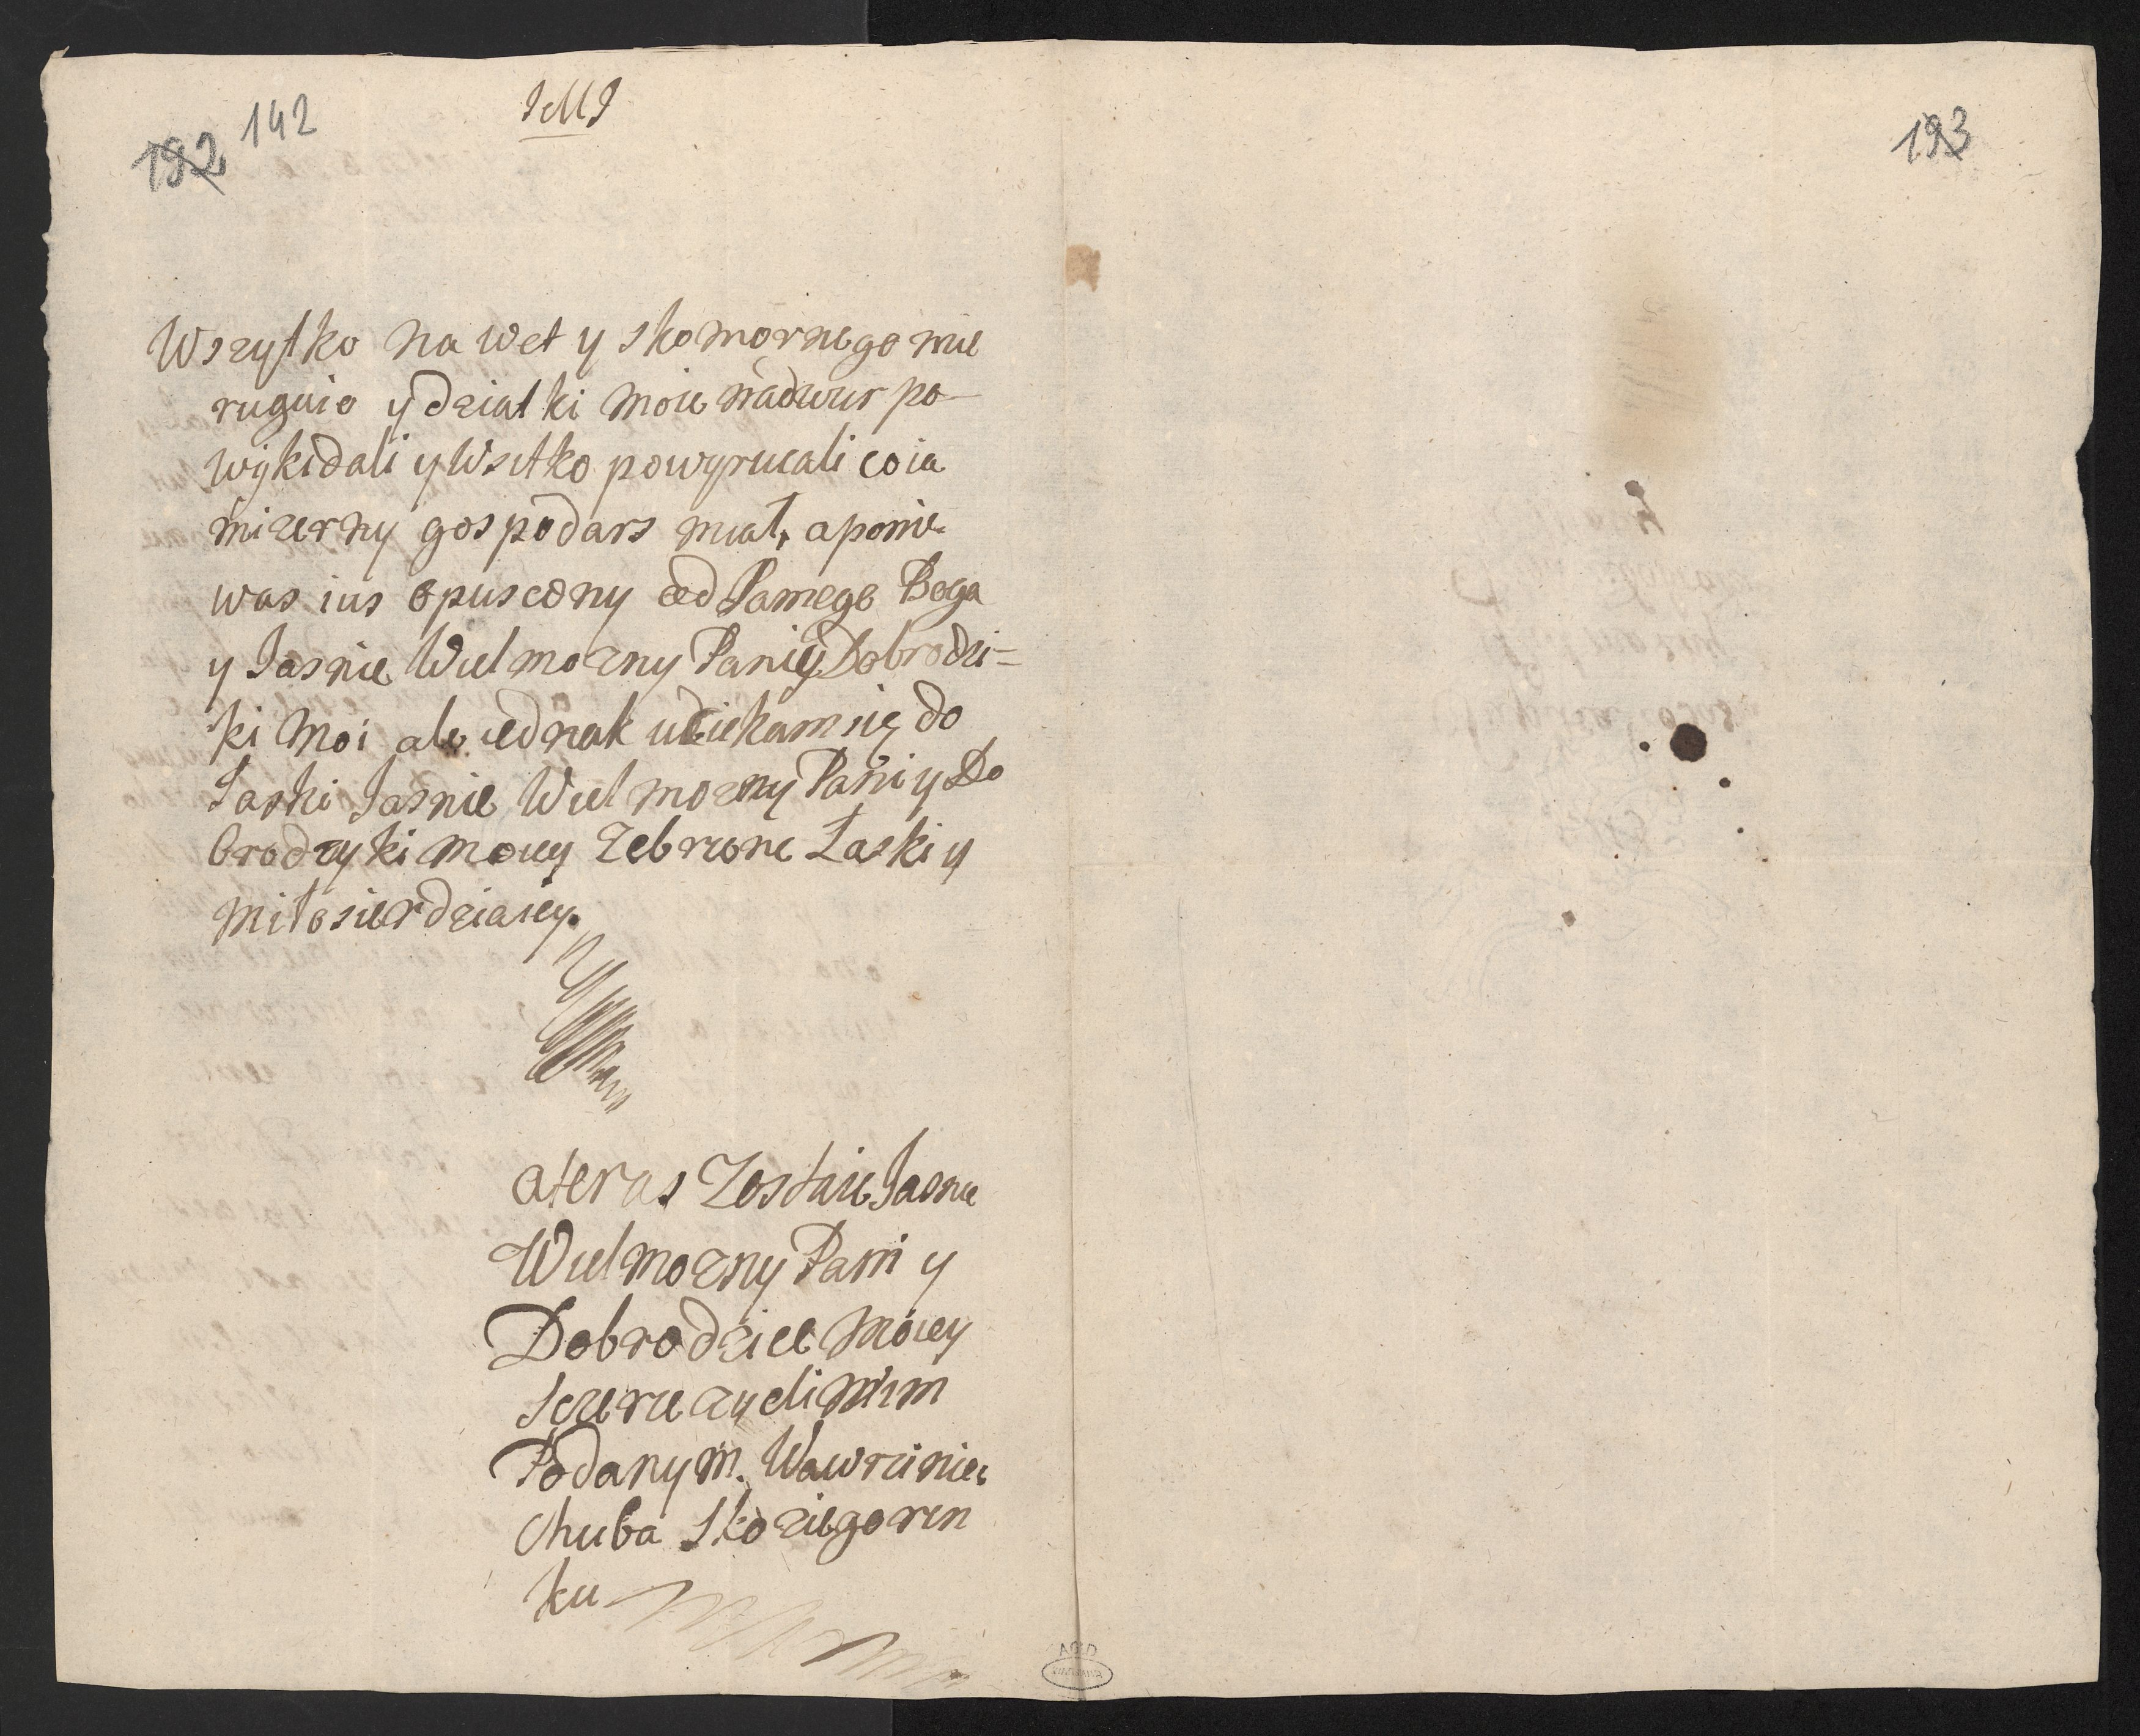 142
192
JMJ
193
Wszytko na wet y skomornego mie
ruguio y dziatki moie nadwur po-
wykidali y wsitko powyrucali co ia
mizerny gospodars miał, a ponie-
was ius opuscony od Pamego Boga
y Jasnie Wielmozny Paniey Dobrodzi=
ki moi ale iednak uciekam się do
Łaski Jasnie Wielmozny Pani y Do
brodzyki moiey Zebrzone Łaski y
miłosierdzia iey.
a teras Zostaie Jasnie
Wielmozny Pani y
Dobrodzice moiey
Sczerze zyclimim
Podanym. Wawrziniec
Chuba Skoziegoren
ku
AGAD
WARSZAWA